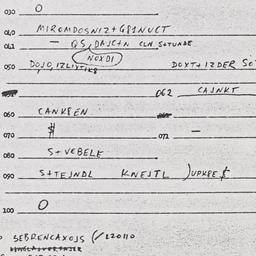 030 O
040 MIROMDOSNIZ+GBINUCT
041 — QS, DAJC+N CLN S+UNDE
NOXDI
050 DOJO, IZLIYTIKS DOXT+IZDER SO
062 CAJNKT
060 CANKBEN
070 $ 071 —
080 S+VEBELE
090 S+TEJNDL KNEJTL )UPKEE $
100 O
SEBRENCAXOJS (/220110